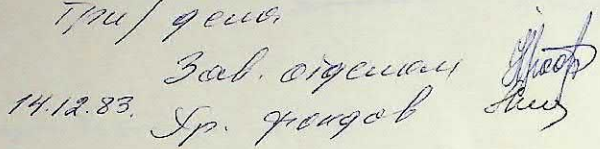 Три/ дела
Зав. отделом
14.12.83. Хр. фондов